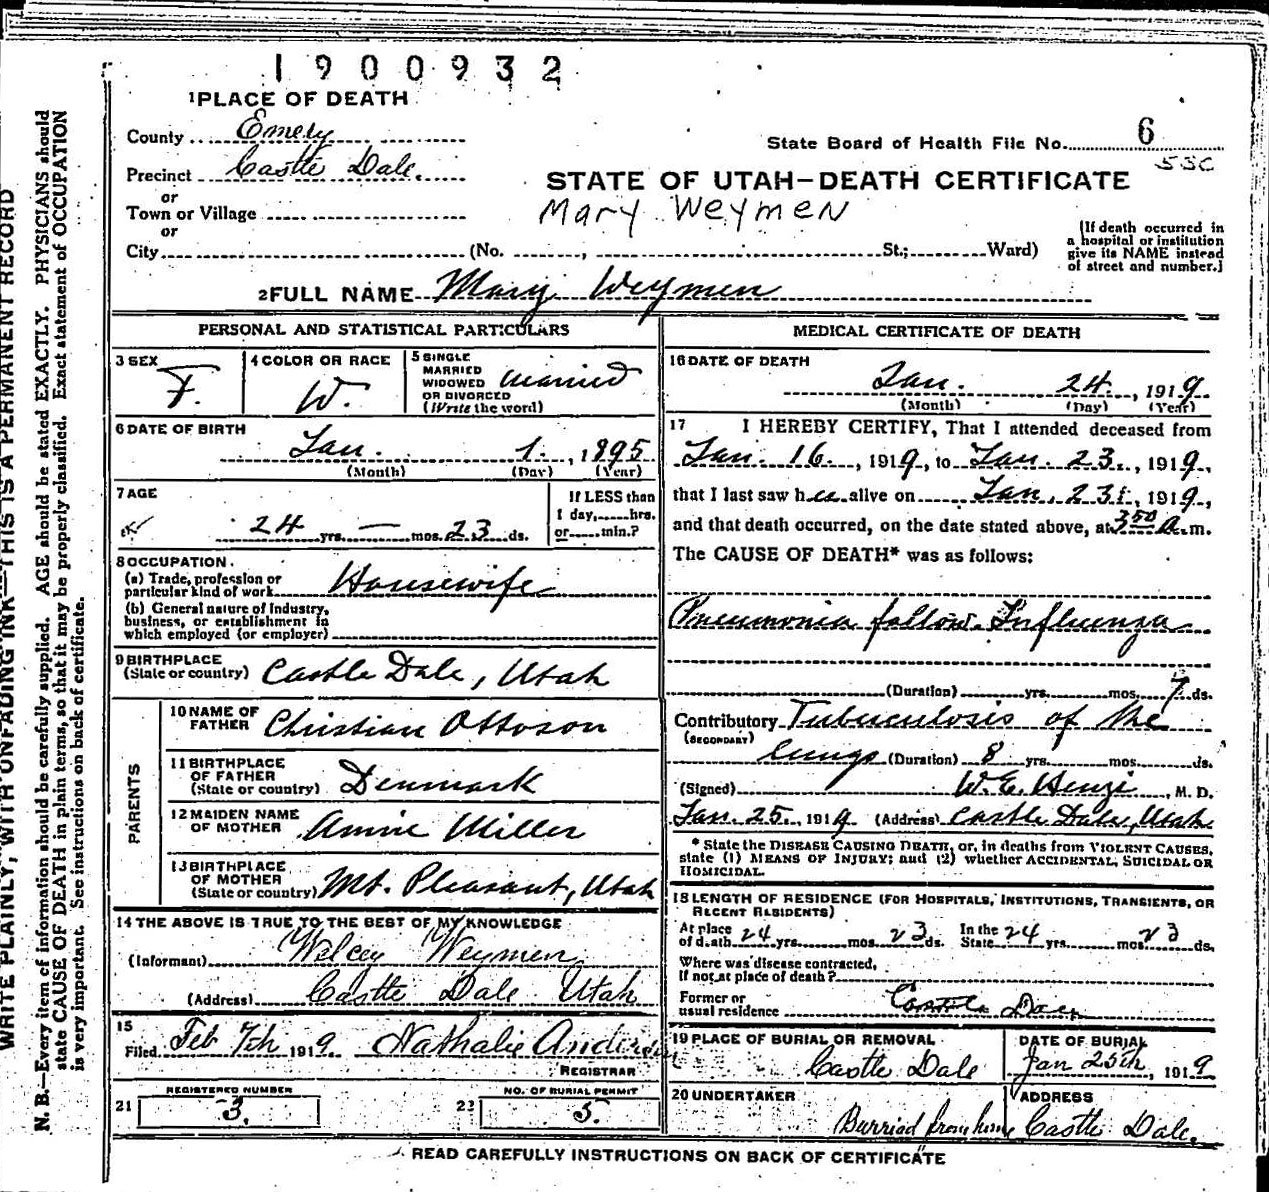 1900932
1 PLACE OF DEATH
County Emery
State Board of Health File No. 6
53C
Precinct Castle Dale.
or
STATE OF UTAH—DEATH CERTIFICATE
Town or Village
Mary Weymen
or
City (No. , St.; Ward)
(If death occurred in
a hospital or institution
give its NAME instead
of street and number.)
2 FULL NAME Mary Weymen
PERSONAL AND STATISTICAL PARTICULARS
3 SEX
F.
4 COLOR OR RACE
W.
5 SINGLE
MARRIED
WIDOWED
OR DIVORCED
(Write the word)
Married
6 DATE OF BIRTH
Jan. 1. , 1895
(Month) (Day) (Year)
7 AGE
24 yrs. — mos. 23 ds.
If LESS than
1 day, hrs.
or min.?
8 OCCUPATION
(a) Trade, profession or
particular kind of work Housewife
(b) General nature of Industry,
business, or establishment in
which employed (or employer)
9 BIRTHPLACE
(State or country) Castle Dale, Utah
PARENTS
10 NAME OF
FATHER Christian Ottoson
11 BIRTHPLACE
OF FATHER
(State or country) Denmark
12 MAIDEN NAME
OF MOTHER Annie Miller
13 BIRTHPLACE
OF MOTHER
(State or country) Mt. Pleasant, Utah
14 THE ABOVE IS TRUE TO THE BEST OF MY KNOWLEDGE
(Informant) Weymen
(Address) Castle Dale Utah
15
Filed Feb 7th 1919. Nathalie Anderson
REGISTRAR
REGISTERED NUMBER
21 3.
NO. OF BURIAL PERMIT
22 5.
MEDICAL CERTIFICATE OF DEATH
16 DATE OF DEATH
Jan. 24. , 1919
(Month) (Day) (Year)
17 I HEREBY CERTIFY, That I attended deceased from
Jan. 16. , 1919, to Jan. 23. , 1919,
that I last saw her alive on Jan. 23. , 1919,
and that death occurred, on the date stated above, at 3 50 a. m.
The CAUSE OF DEATH* was as follows:
Pneumonia follow. Influenza
(Duration) yrs. mos. 7 ds.
Contributory Tuberculosis of the
(SECONDARY)
lungs (Duration) 8 yrs. mos. ds.
(Signed) W. E. , M. D.
Jan. 25. , 1919 (Address) Castle Dale, Utah
* State the DISEASE CAUSING DEATH, or, in deaths from VIOLENT CAUSES,
state (1) MEANS OF INJURY; and (2) whether ACCIDENTAL, SUICIDAL OR
HOMICIDAL.
18 LENGTH OF RESIDENCE (FOR HOSPITALS, INSTITUTIONS, TRANSIENTS, OR
RECENT RESIDENTS)
At place
of death 24 yrs. mos. 23 ds.
In the
State 24 yrs. mos. 23 ds.
Where was disease contracted,
If not at place of death?
Former or
usual residence Castle Dale
19 PLACE OF BURIAL OR REMOVAL
Castle Dale
DATE OF BURIAL
Jan 25th , 1919
20 UNDERTAKER
Burried from home
ADDRESS
Castle Dale.
READ CAREFULLY INSTRUCTIONS ON BACK OF CERTIFICATE
WRITE PLAINLY, WITH UNFADING INK—THIS IS A PERMANENT RECORD
N. B.—Every item of information should be carefully supplied. AGE should be stated EXACTLY. PHYSICIANS should
state CAUSE OF DEATH in plain terms, so that it may be properly classified. Exact statement of OCCUPATION
is very important. See instructions on back of certificate.